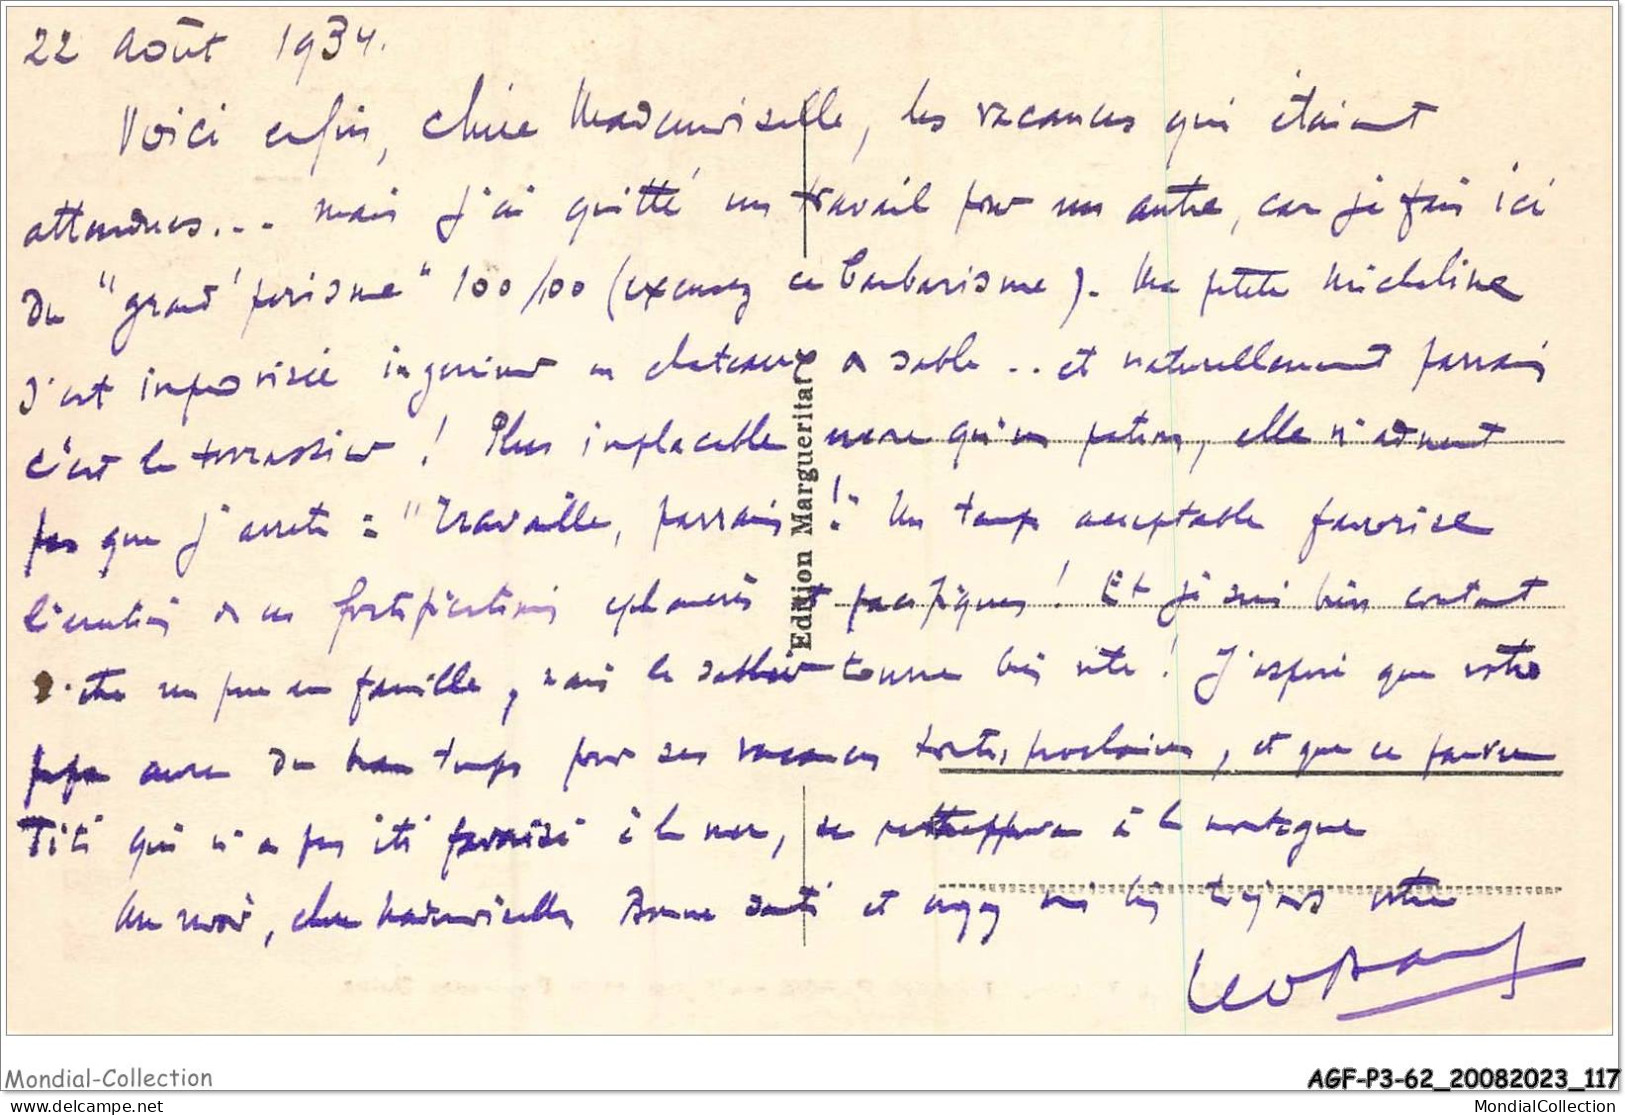 22 Août 1934.
Voici enfin, chère Mademoiselle, les vacances qui étaient
attendues... mais j'ai quitté un travail pour un autre, car je fais ici
du "grand'périsme" 100/100 (excusez ce barbarisme). Ma petite Micheline
s'est improvisée ingénieur en chateaux de sable .. et naturellement parrain
c'est le terrassier ! Plus implacable encore qu'un patron, elle n'admet
pas que j'arrête = "Travaille, parrain !" Un temps acceptable favorise
l'érection de ces fortifications éphémères et pacifiques ! Et je suis bien content
d'être un peu en famille, mais le sablier tourne bien vite ! J'espère que votre
papa aura du beau temps pour ses vacances toutes prochaines, et que ce pauvre
Titi qui n'a pas été favorisé à la mer, se rattrapera à la montagne
Au revoir, chère Mademoiselle Bonne santé et croyez moi bien toujours votre
Edition Marguerita
Mondial-Collection
AGF-P3-62_20082023_117
www.delcampe.net
MondialCollection